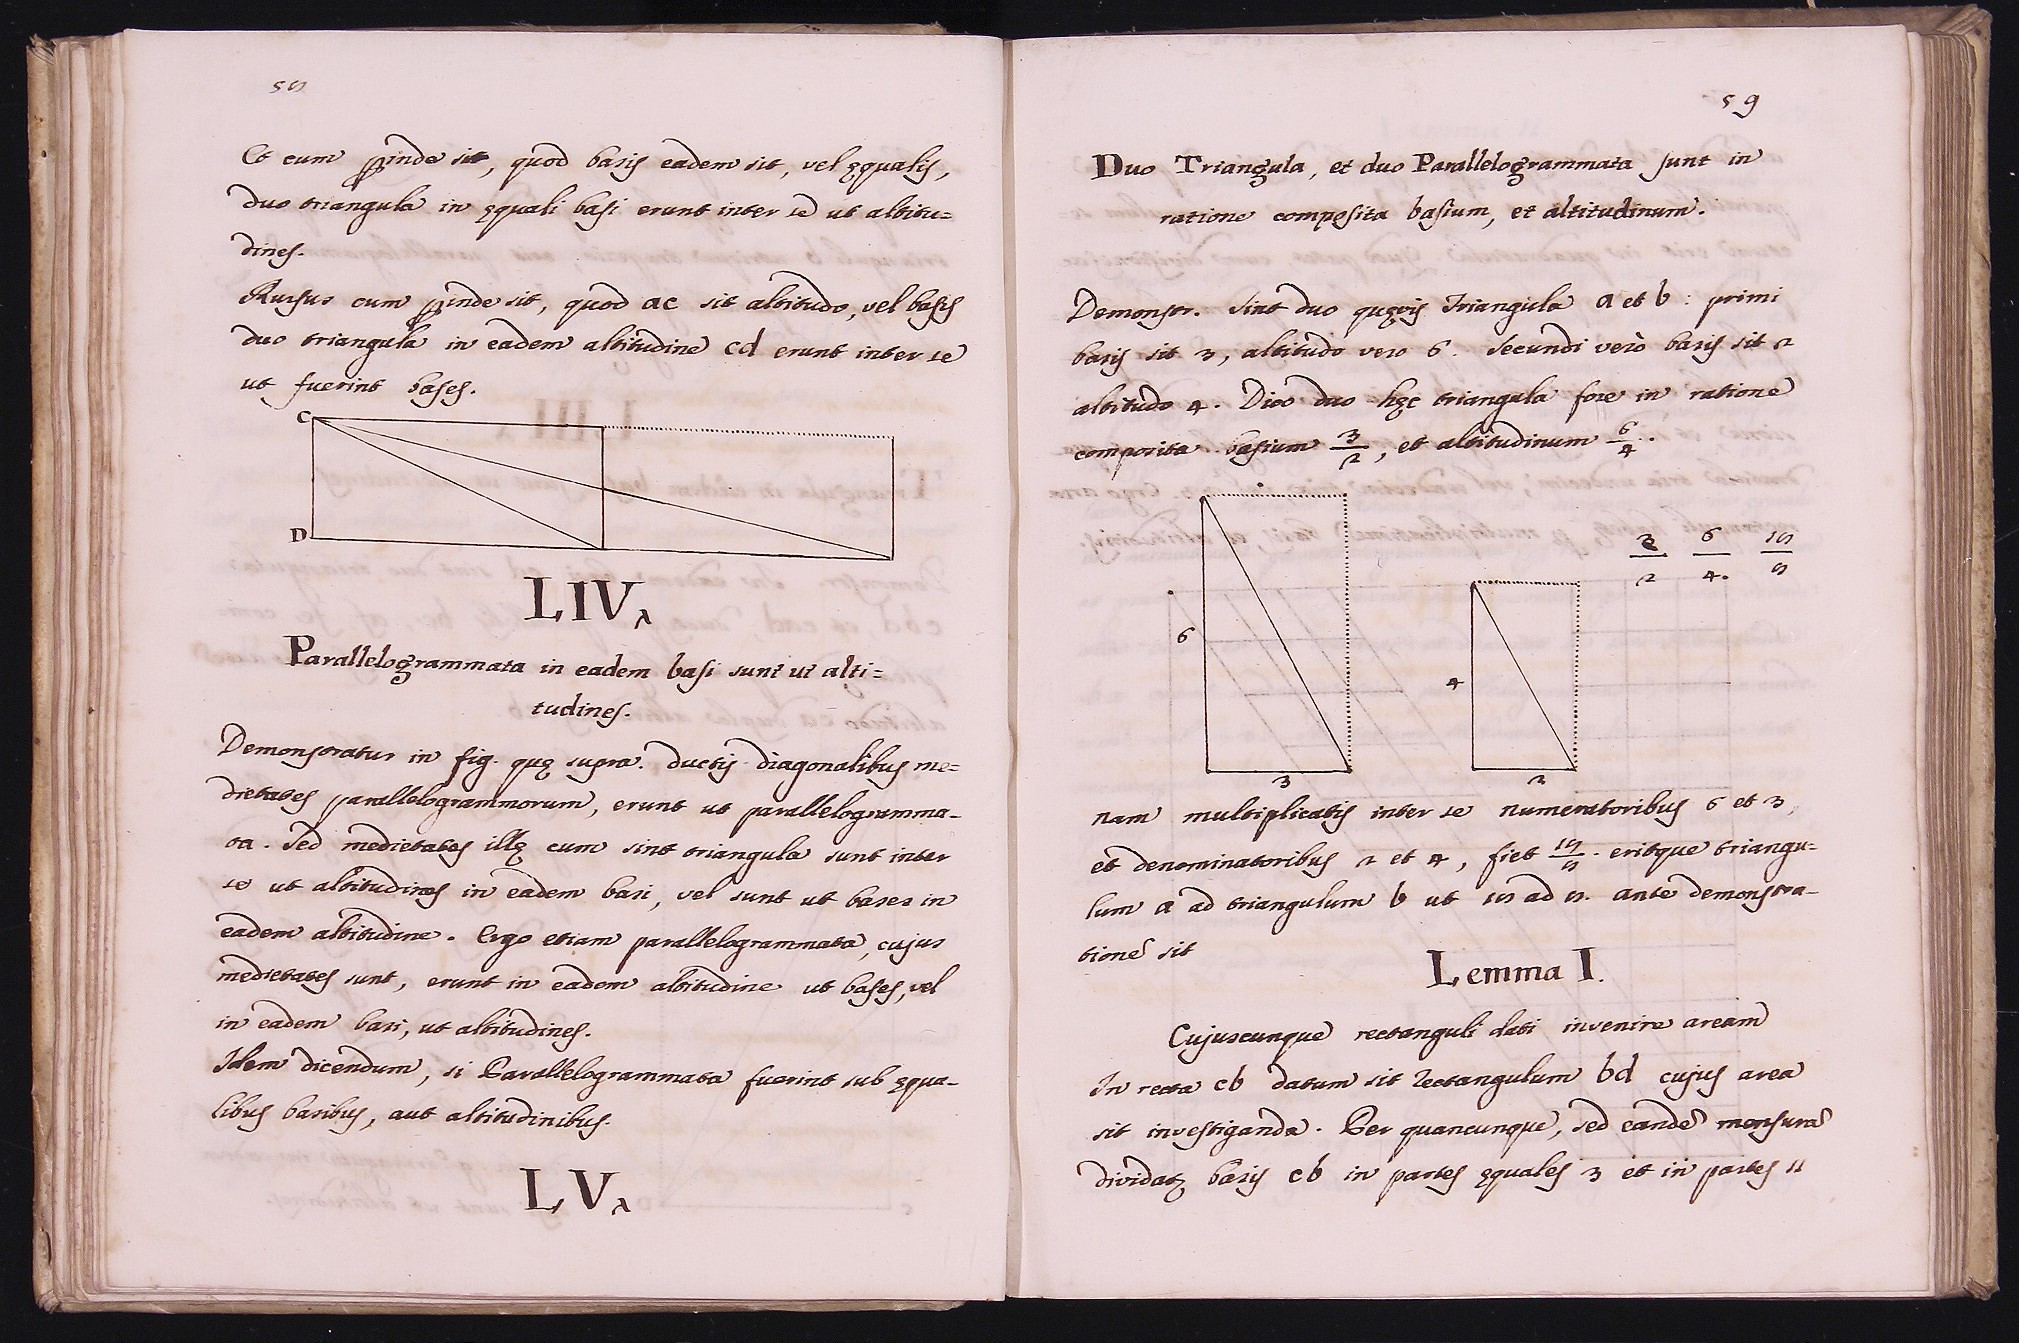 58
Et cum perinde sit, quod basis eadem sit, vel ęqualis,
duo triangula in ęquali basi erunt inter se ut altitu=
dines.
Rursus cum perinde sit, quod ac sit altitudo, vel basis
duo triangula in eadem altitudine cd erunt inter se
ut fuerint bases.
C
D
LIV.
Parallelogrammata in eadem basi sunt ut alti=
tudines.
Demonstratur in fig. quę supra. ductis diagonalibus me=
dietates parallelogrammorum, erunt ut parallelogramma-
ta. Sed medietates illę cum sint triangula sunt inter
se ut altitudines in eadem basi, vel sunt ut bases in
eadem altitudine. Ergo etiam parallelogrammata, cujus
medietates sunt, erunt in eadem altitudine ut bases, vel
in eadem basi, ut altitudines.
Idem dicendum, si Parallelogrammata fuerint sub ęqua-
libus basibus, aut altitudinibus.
LV.
59
Duo Triangula, et duo Parallelogrammata sunt in
ratione composita basium, et altitudinum.
Demonstr. Sint duo quęvis Triangula a et b: primi
basis sit 3, altitudo vero 6. Secundi verò basis sit 2
altitudo 4. Dico duo hęc triangula fore in ratione
composita basium 3/2, et altitudinum 6/4.
3/2 6/4. 18/8
6
4
3
2
nam multiplicatis inter se numeratoribus 6 et 3,
et denominatoribus 2 et 4, fiet 18/8. eritque triangu-
lum a ad triangulum b ut 18 ad 8. ante demonstra-
tionē sit
Lemma I.
Cujuscunque rectanguli dati invenire aream
In recta cb datum sit rectangulum bd cujus area
sit investiganda. Per quancunque, sed eandē mensurā
dividatꝫ basis cb in partes ęquales 3 et in partes 11